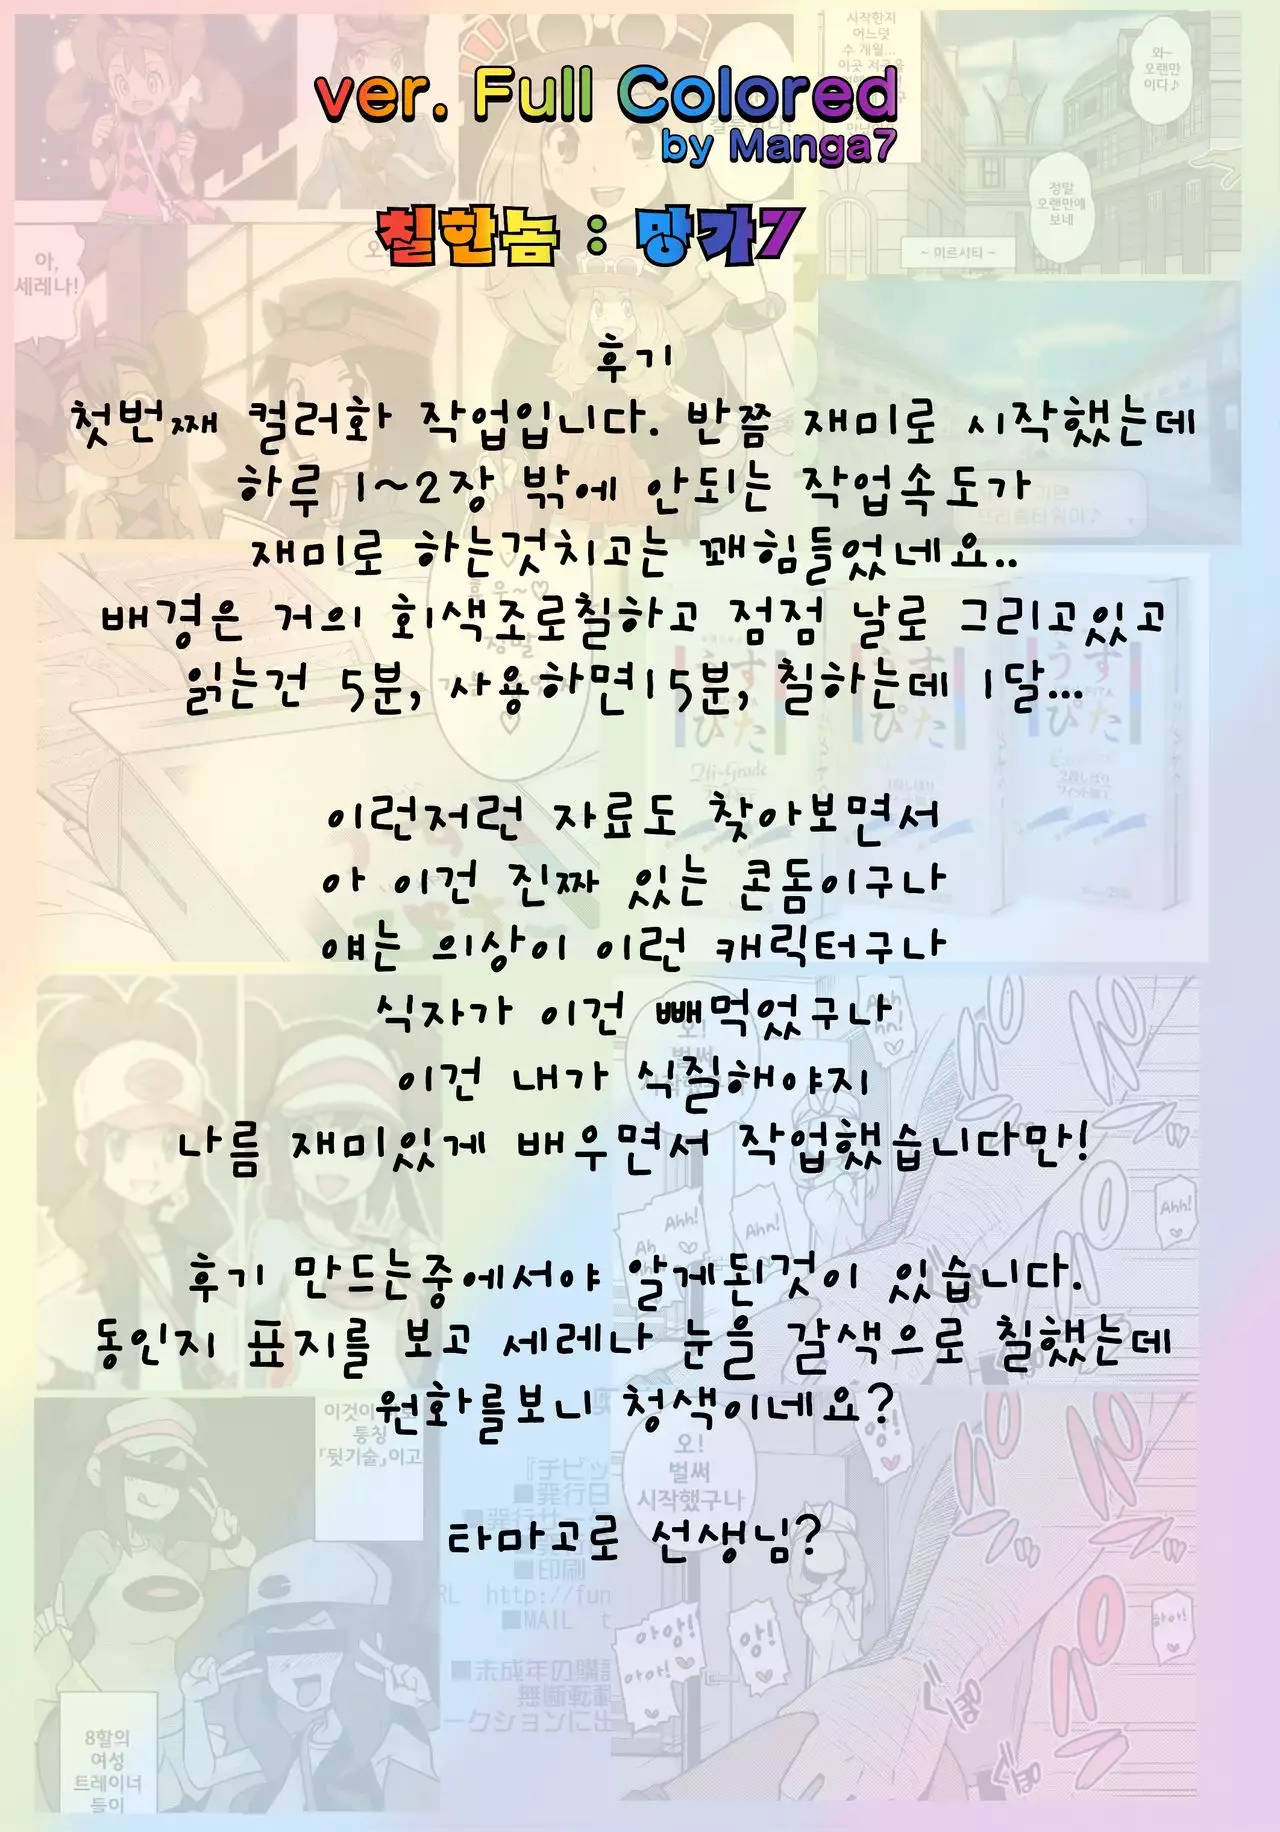 ver. Full Colored
by Manga7
칠한놈 : 망가7
후기
첫번째 컬러화 작업입니다. 반쯤 재미로 시작했는데
하루 1~2장 밖에 안되는 작업속도가
재미로 하는것치고는 꽤힘들었네요..
배경은 거의 회색조로칠하고 점점 날로 그리고있고
읽는건 5분, 사용하면15분, 칠하는데 1달...
이런저런 자료도 찾아보면서
아 이건 진짜 있는 콘돔이구나
얘는 의상이 이런 캐릭터구나
식자가 이건 빼먹었구나
이건 내가 식질해야지
나름 재미있게 배우면서 작업했습니다만!
후기 만드는중에서야 알게된것이 있습니다.
동인지 표지를 보고 세레나 눈을 갈색으로 칠했는데
원화를보니 청색이네요?
타마고로 선생님?
시작한지
어느덧
수 개월...
와~
오랜만
이다♪
정말
오랜만에
보네
~ 미르시티 ~
아,
세레나!
うす
ぴた
Hi-Grade
うす
ぴた
うす
ぴた
2段しぼり
フィット加工
Ahh!
Ahh!
Ahh!
Ahn!
Ahh!
통칭
「뒷기술」이고
오!
벌써
시작했구나
앙!
아앙!
아아!
앙!
하아!
■発行日
■印刷
http://fun
■MAIL t
■未成年の購
無断転
ークションに出
8할의
여성
트레이너
들이